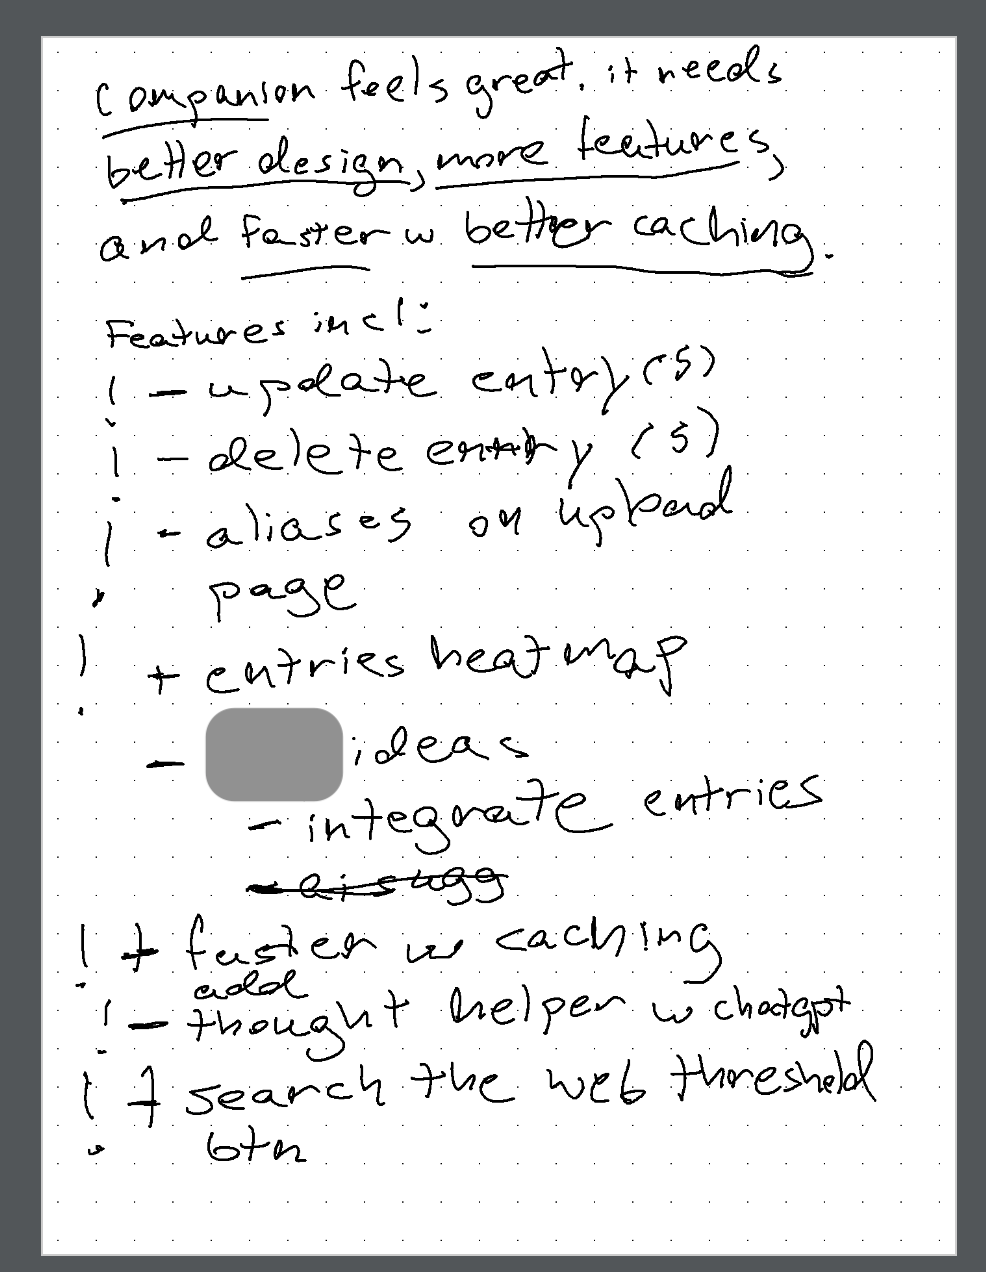 Companion feels great. it needs
better design, more features,
and faster w better caching.
Features incl:
! - update entry(s)
! - delete entry (s)
! - aliases on upload
page
! + entries heatmap
- ideas
- integrate entries
- ai sugg
! + faster w caching
add
! - thought helper w chatgpt
! + search the web threshold
btn